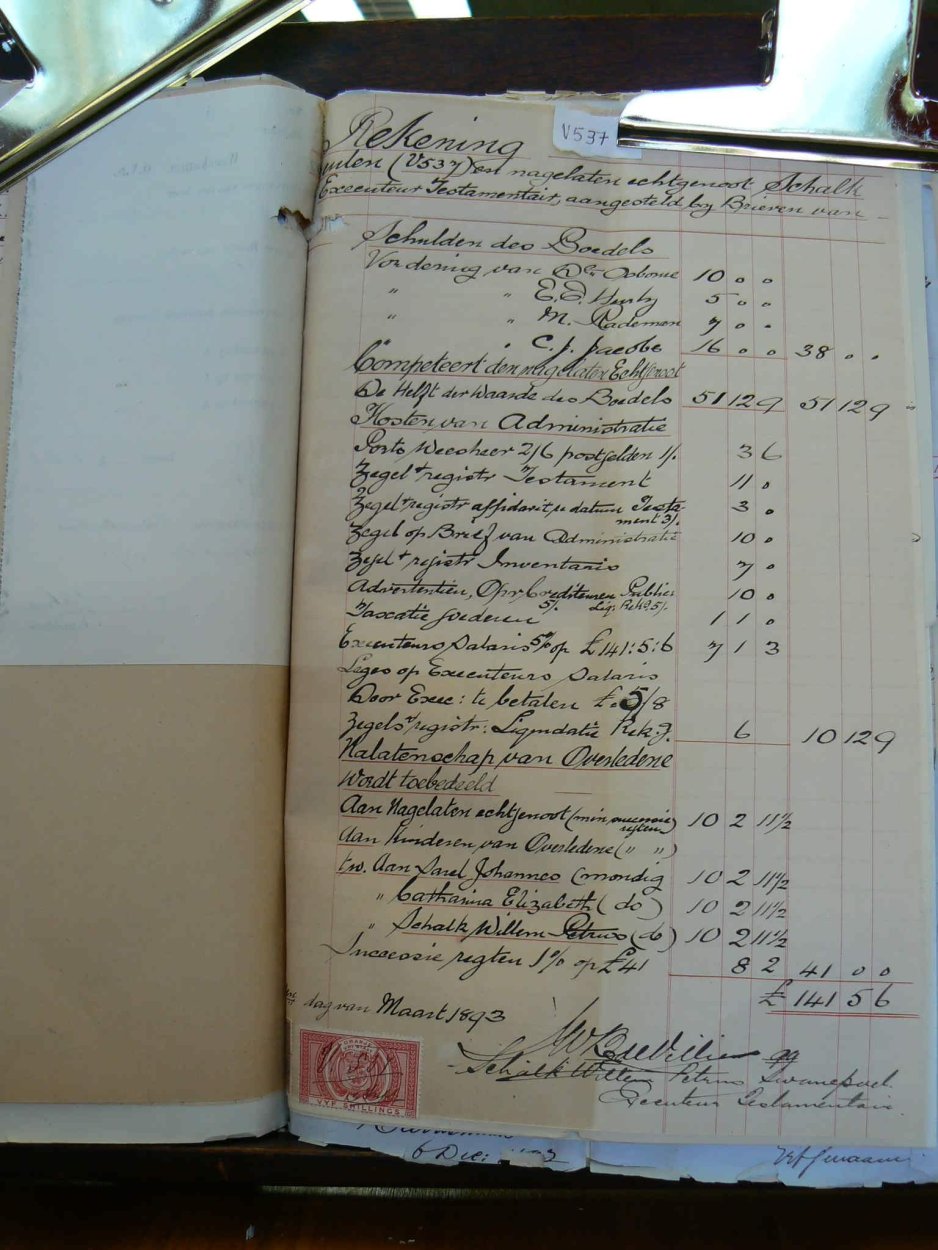 V537
Rekening
(V537) en nagelaten echtgenoot Schalk
Executeur Testamentair, aangesteld by Brieven van
Schulden des Boedels
Vordering van Osborne 10 0 0
" " E. D. 5 0 0
" " M. Rademan 7 0 0
" " C. J. Jacobs 16 0 0 38 0 0
Competeert den nagelaten Echtgenoot
De Helft der Waarde des Boedels 51 12 9 51 12 9
Kosten van Administratie
Porto Weesheer 2/6 postgelden 1/. 3 6
Zegel & registr Testament 11 0
Zegel & registr affidavit u datum Testa 3 0
ment 3/.
Zegel op Brief van Administratie 10 0
Zegel & registr Inventaris 7 0
Advertentien, Opr. Crediteuren Public: 10 0
5/. Liq: Rek9. 5/.
Taxatie goederen 1 1 0
Executeurs Salaris 5% op £141:5:6 7 1 3
Leges op Executeurs Salaris
Door Exec: te betalen £. 5/8
Zegels & registr: Liquidatie Rek9. 6 10 12 9
Nalatenschap van Overledene
Wordt toebedeeld
Aan Nagelaten echtgenoot (min successie 10 2 11½
regten)
Aan Kinderen van Overledene ( " " )
tw. Aan Sarel Johannes (mondig 10 2 11½
" Catharina Elizabeth ( do ) 10 2 11½
" Schalk Willem Petrus (do) 10 2 11½
Successie regten 1% op £41 8 2 41 0 0
£ 141 5 6
dag van Maart 1893
de Villiers qq
Schalk Willem Petrus Swanepoel
Executeur Testamentair.
ORANGE
VYF SHILLINGS
6 Dec: